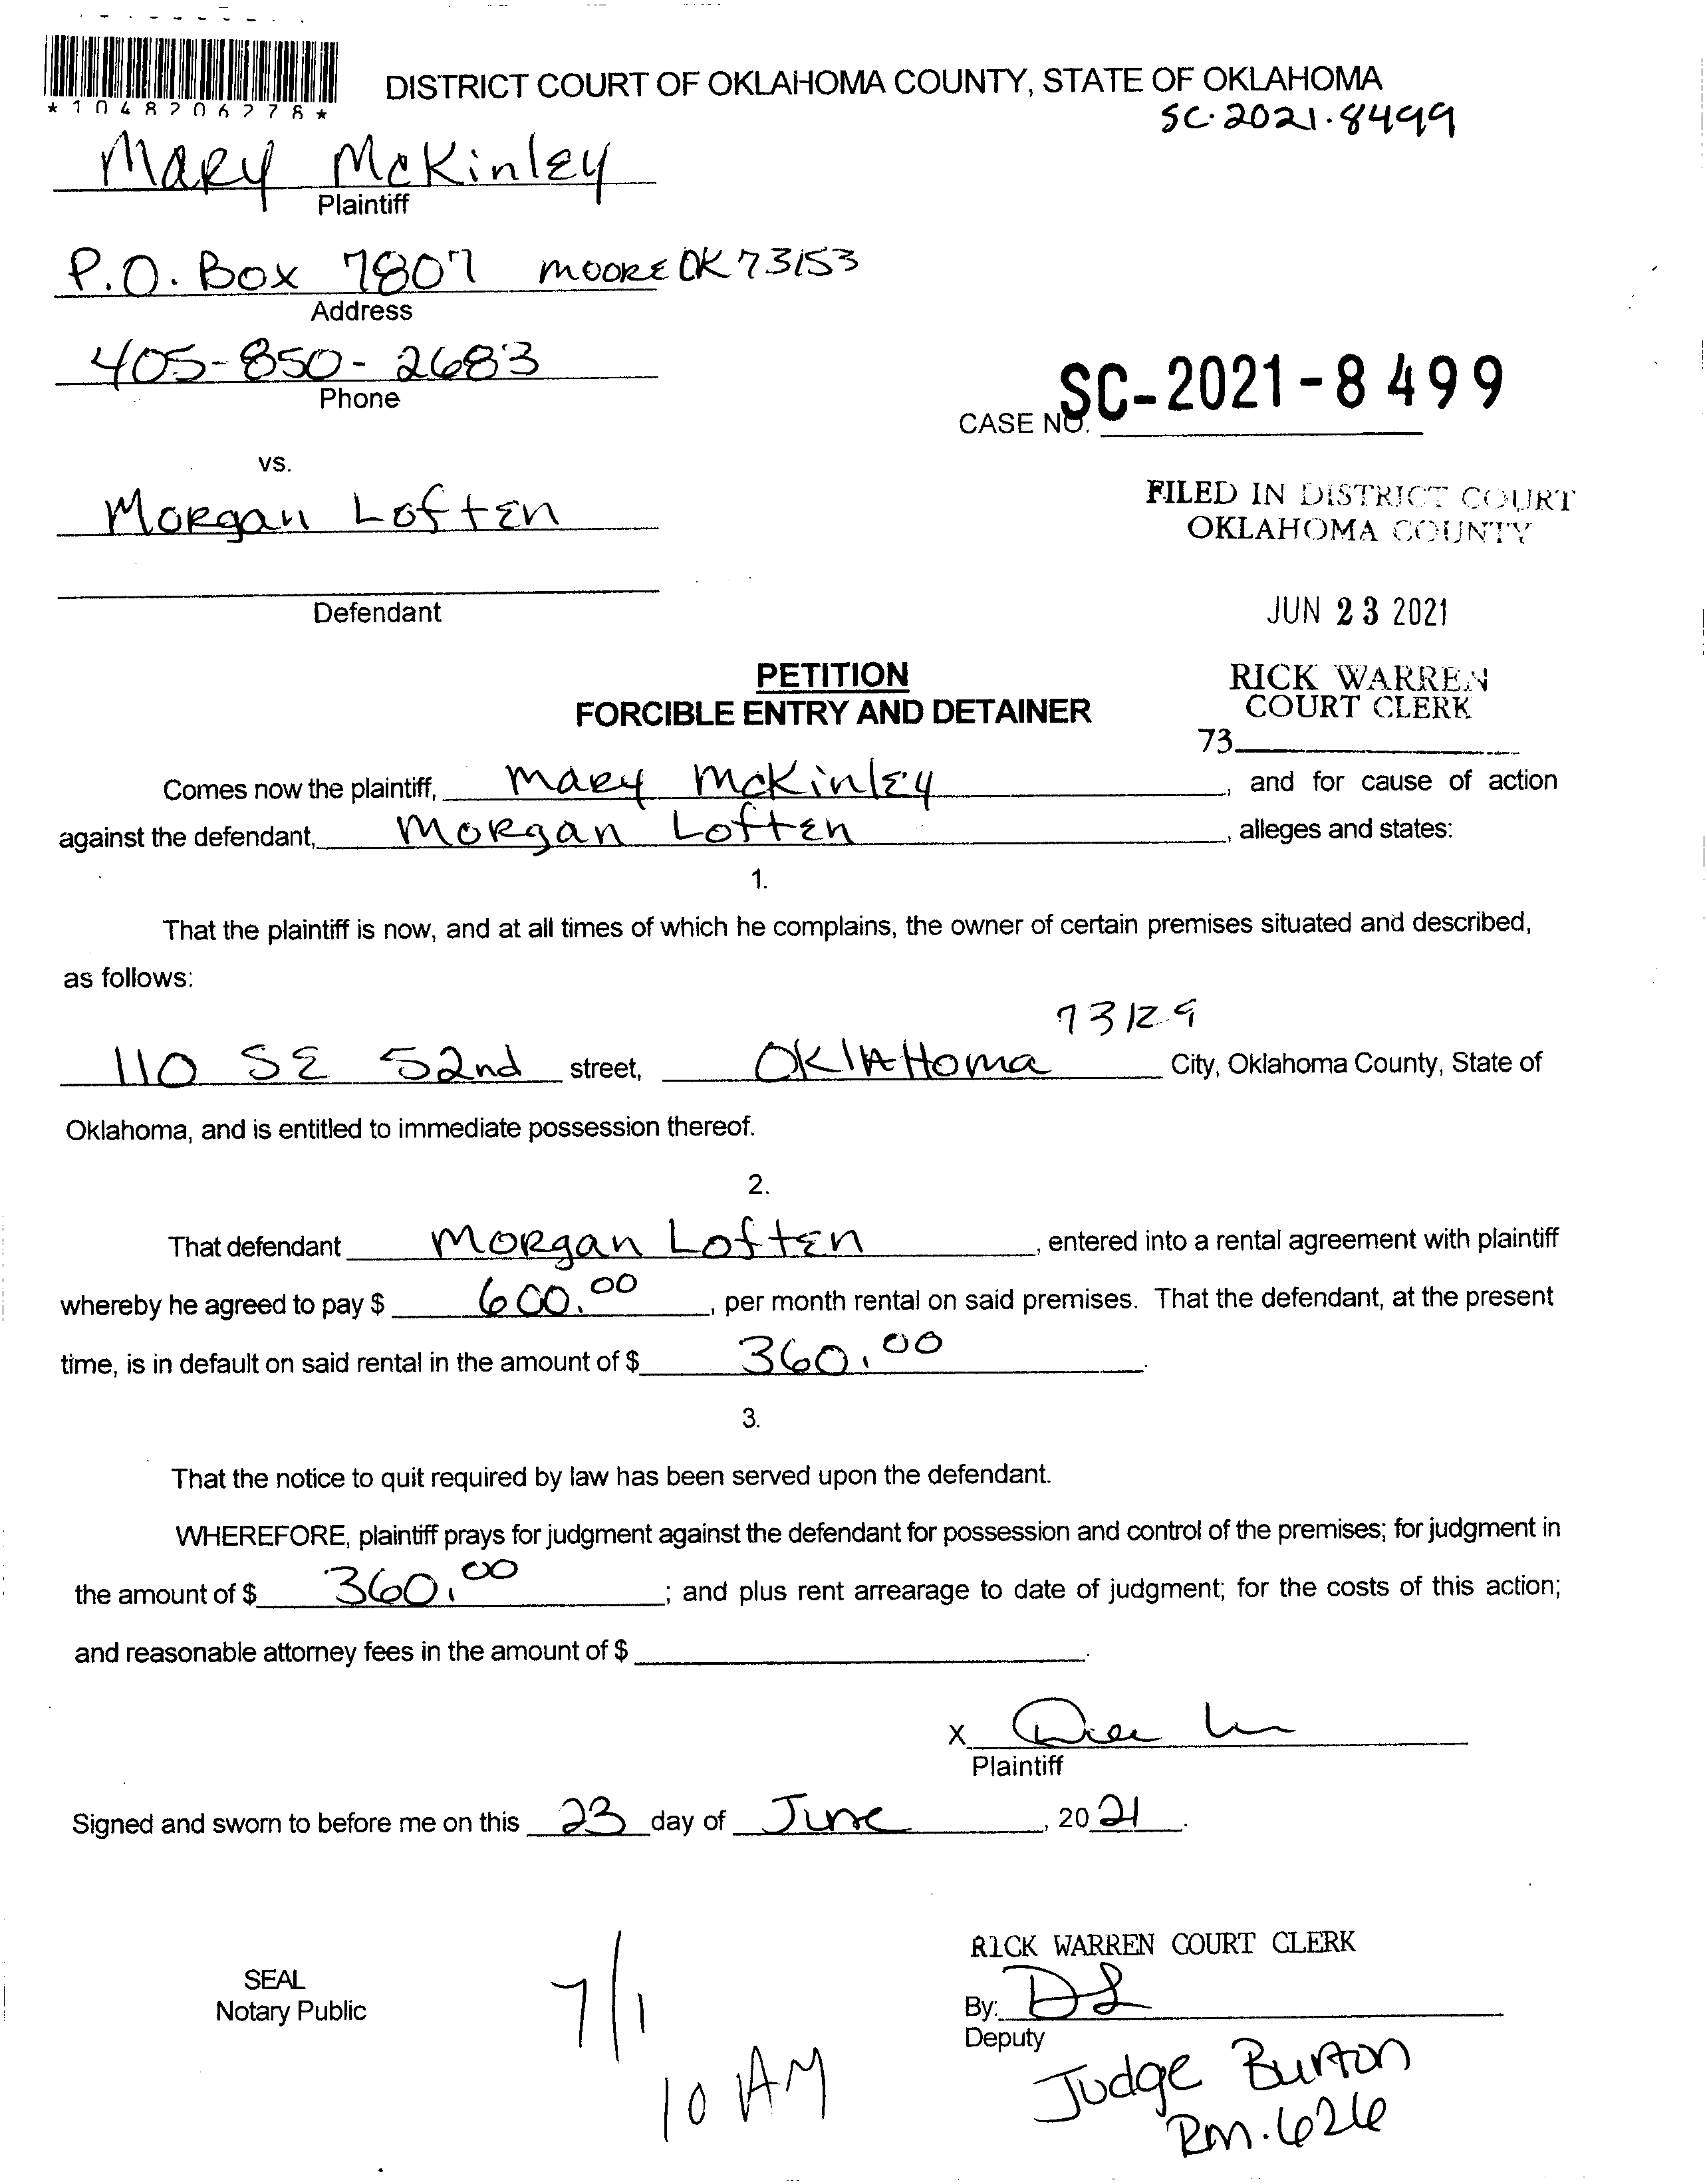 DISTRICT COURT OF OKLAHOMA COUNTY, STATE OF OKLAHOMA
*1048206278*
SC-2021-8499
Mary McKinley
Plaintiff
P.O. Box 7807 Moore OK 73153
Address
405-850-2683
Phone
CASE NO. SC-2021-8499
vs.
Morgan Loften
FILED IN DISTRICT COURT
OKLAHOMA COUNTY
Defendant
JUN 23 2021
PETITION
FORCIBLE ENTRY AND DETAINER
RICK WARREN
COURT CLERK
73
Comes now the plaintiff, Mary McKinley, and for cause of action
against the defendant, Morgan Loften, alleges and states:
1.
That the plaintiff is now, and at all times of which he complains, the owner of certain premises situated and described,
as follows:
73129
110 SE 52nd street, Oklahoma City, Oklahoma County, State of
Oklahoma, and is entitled to immediate possession thereof.
2.
That defendant Morgan Loften, entered into a rental agreement with plaintiff
whereby he agreed to pay $ 600.00, per month rental on said premises. That the defendant, at the present
time, is in default on said rental in the amount of $ 360.00.
3.
That the notice to quit required by law has been served upon the defendant.
WHEREFORE, plaintiff prays for judgment against the defendant for possession and control of the premises; for judgment in
the amount of $ 360.00; and plus rent arrearage to date of judgment; for the costs of this action;
and reasonable attorney fees in the amount of $ .
X
Plaintiff
Signed and sworn to before me on this 23 day of June, 2021.
RICK WARREN COURT CLERK
SEAL
Notary Public
By: DL
Deputy
7/1
10 AM
Judge Burton
Rm. 626